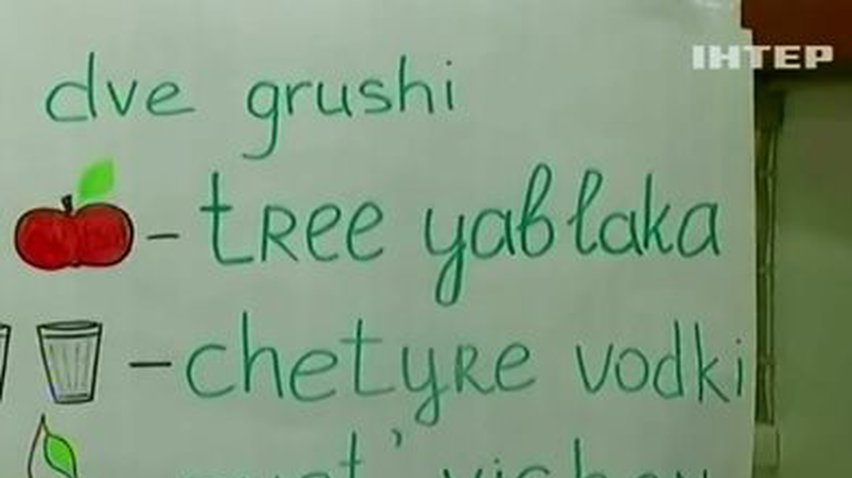 ІНТЕР
dve grushi
- tree yablaka
- chetyre vodki